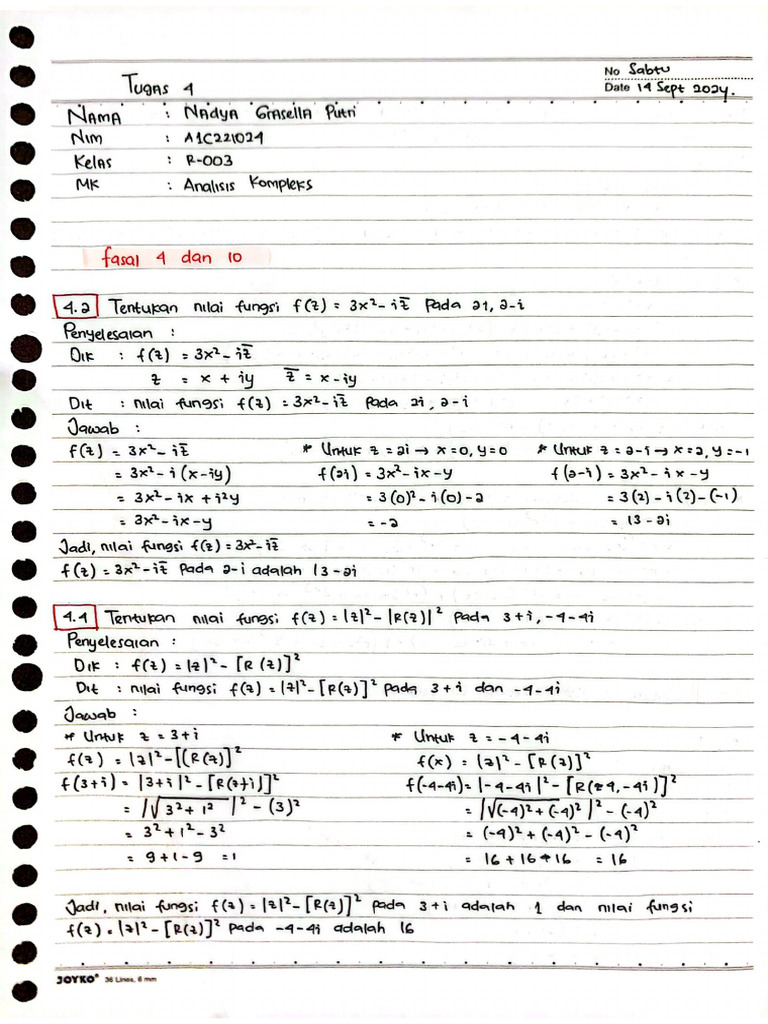 No Sabtu
Tugas 4
Date 14 Sept 2024.
Nama : Nadya Grasella Putri
Nim : A1C221024
Kelas : R-003
MK : Analisis Kompleks
fasal 4 dan 10
4.2 Tentukan nilai fungsi f(z) = 3x² - iz̅ pada 21, 2-i
Penyelesaian :
Dik : f(z) = 3x² - iz̅
z = x + iy z̅ = x - iy
Dit : nilai fungsi f(z) = 3x² - iz̅ pada 2i, 2-i
Jawab :
f(z) = 3x² - iz̅ * Untuk z = 2i → x = 0, y = 0 * Untuk z = 2-i → x = 2, y = -1
= 3x² - i(x-iy) f(2i) = 3x² - ix - y f(2-i) = 3x² - ix - y
= 3x² - ix + i²y = 3(0)² - i(0) - 2 = 3(2) - i(2) - (-1)
= 3x² - ix - y = -2 = 13 - 2i
Jadi, nilai fungsi f(z) = 3x² - iz̅
f(z) = 3x² - iz̅ pada 2-i adalah 13 - 2i
4.4 Tentukan nilai fungsi f(z) = |z|² - |R(z)|² pada 3+i, -4-4i
Penyelesaian :
Dik : f(z) = |z|² - [R(z)]²
Dit : nilai fungsi f(z) = |z|² - [R(z)]² pada 3+i dan -4-4i
Jawab :
* Untuk z = 3+i * Untuk z = -4-4i
f(z) = |z|² - [(R(z)]² f(x) = |z|² - [R(z)]²
f(3+i) = |3+i|² - [R(z+i)]² f(-4-4i) = |-4-4i|² - [R(z4,-4i)]²
= |√3² + 1²|² - (3)² = |√(-4)² + (-4)²|² - (-4)²
= 3² + 1² - 3² = (-4)² + (-4)² - (-4)²
= 9 + 1 - 9 = 1 = 16 + 16 + 16 = 16
Jadi, nilai fungsi f(z) = |z|² - [R(z)]² pada 3+i adalah 1 dan nilai fungsi
f(z) = |z|² - [R(z)]² pada -4-4i adalah 16
JOYKO® 36 Lines, 6 mm